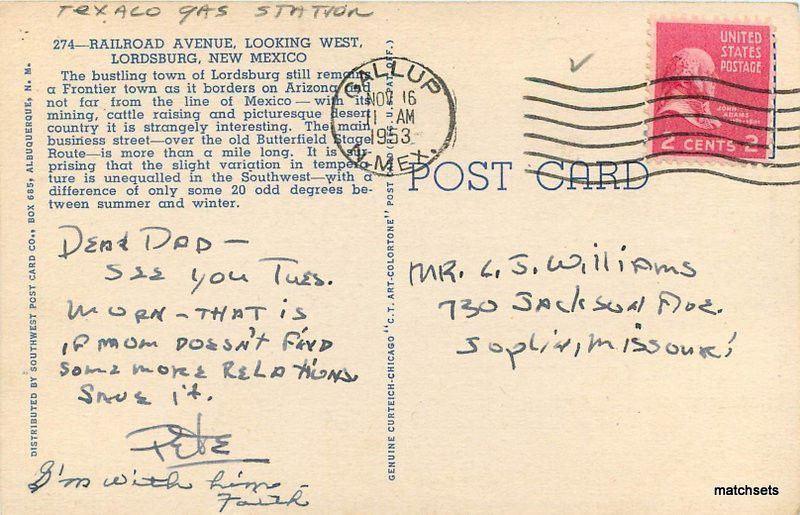 TEXACO GAS STATION
274—RAILROAD AVENUE, LOOKING WEST,
LORDSBURG, NEW MEXICO
The bustling town of Lordsburg still remains
a Frontier town as it borders on Arizona and
not far from the line of Mexico—with its
mining, cattle raising and picturesque desert
country it is strangely interesting. The main
business street—over the old Butterfield Stage
Route—is more than a mile long. It is sur-
prising that the slight variation in tempera-
ture is unequalled in the Southwest—with a
difference of only some 20 odd degrees be-
tween summer and winter.
DEAR DAD —
SEE YOU TUES.
MORN - THAT IS
IF MOM DOESN'T FIND
SOME MORE RELATIONS
SAVE IT.
PETE
I'm with him -
Faith
DISTRIBUTED BY SOUTHWEST POST CARD CO., BOX 685, ALBUQUERQUE, N. M.
GENUINE CURTEICH-CHICAGO "C.T. ART-COLORTONE" POST
GALLUP
NOV 16
11 AM
1953
N. MEX.
UNITED
STATES
POSTAGE
JOHN
ADAMS
2 CENTS 2
POST CARD
MR. L. J. Williams
730 JACKSON AVE.
JOPLIN, MISSOURI
matchsets